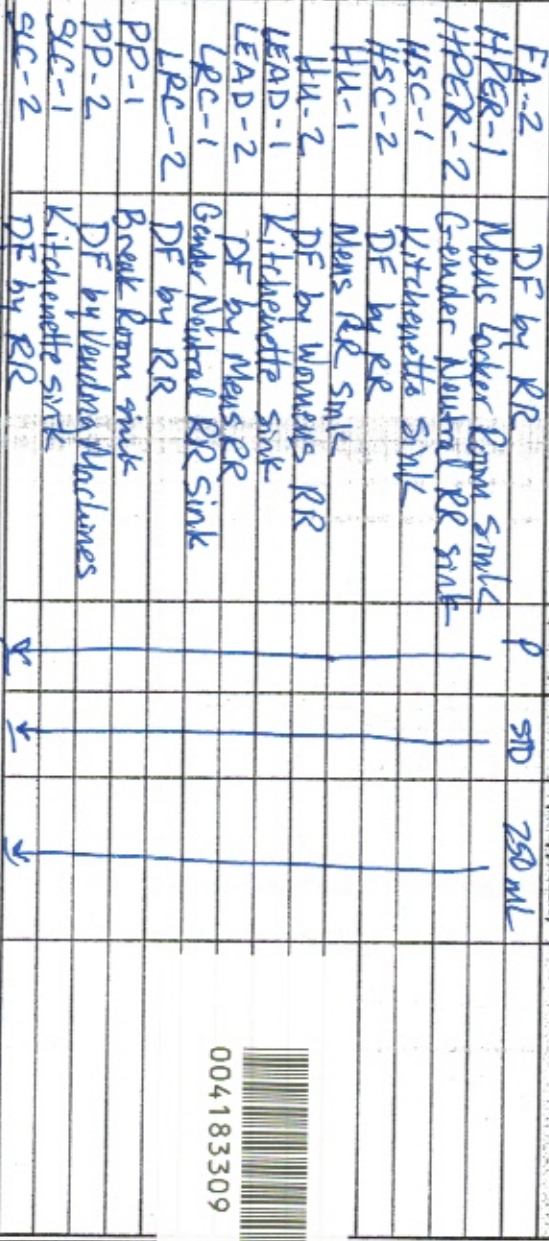 FA-2 DF by RR P STD 250 mL
HPER-1 Mens Locker Room Sink
HPER-2 Gender Neutral RR sink
HSC-1 Kitchenette Sink
HSC-2 DF by RR
HU-1 Mens RR Sink
HU-2 DF by Womens RR
LEAD-1 Kitchenette sink
LEAD-2 DF by Mens RR
LRC-1 Gender Neutral RR Sink
LRC-2 DF by RR
PP-1 Break Room sink
PP-2 DF by Vending Machines
SLC-1 Kitchenette sink
SLC-2 DF by RR
004183309